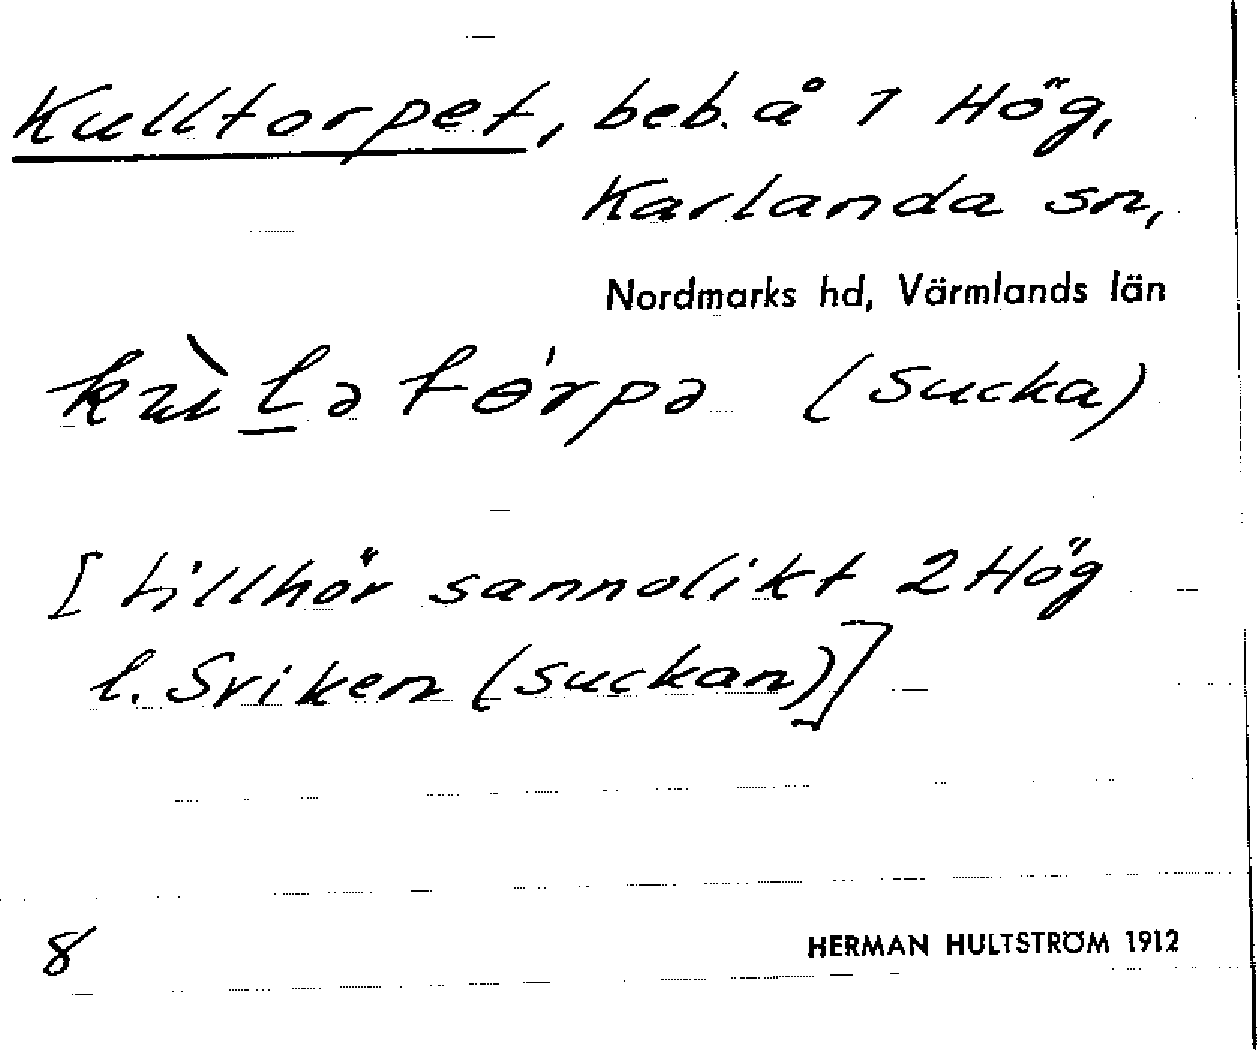 Kulltorpet, beb. å 1 Hög,
Karlanda sn,
Nordmarks hd, Värmlands län
(Sucka)
[tillhör sannolikt 2 Hög
l. Sriken (Suckan)]
8
HERMAN HULTSTRÖM 1912